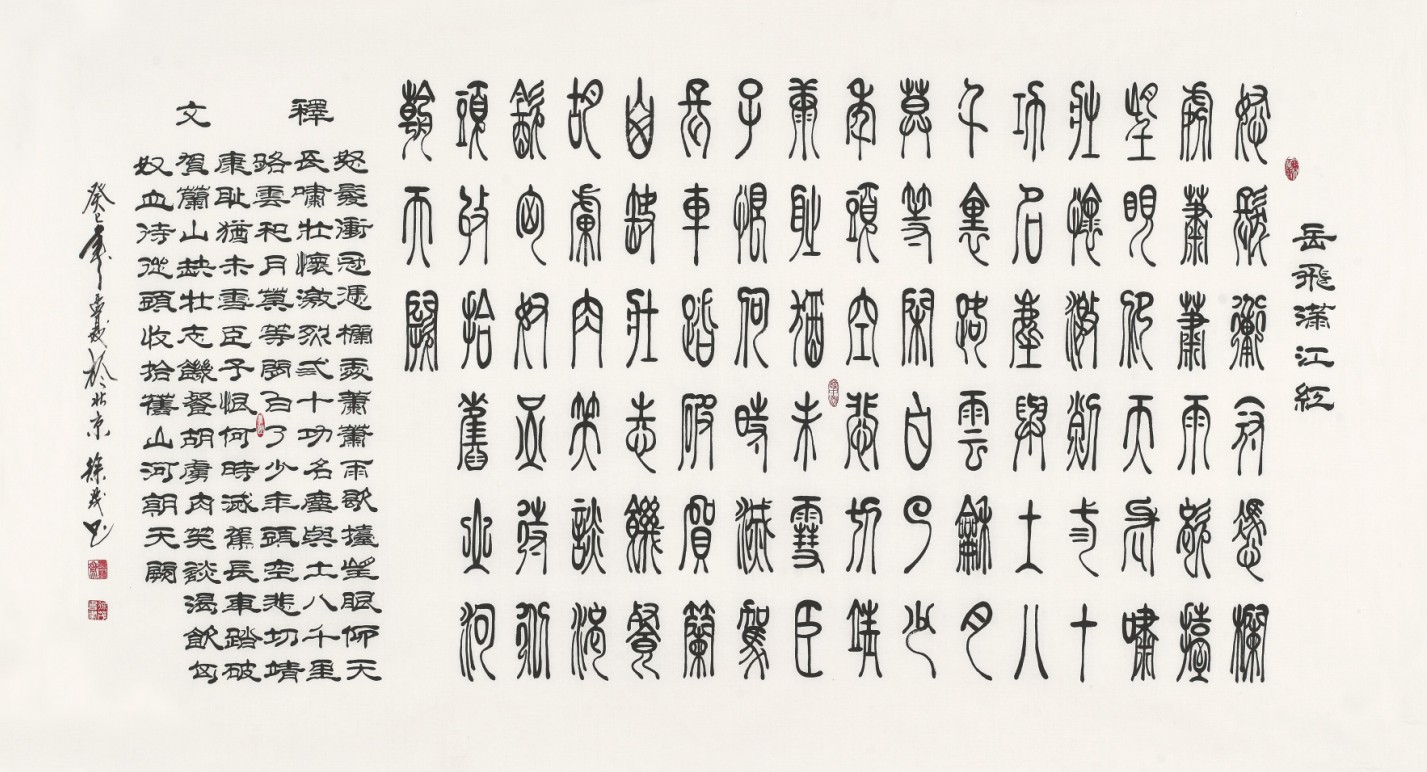 岳飛滿江紅
怒髮衝冠憑欄
處蕭蕭雨歇擡
望眼仰天長嘯
壯懷激烈弎十
功名塵與土八
千里路雲和月
莫等閑白了少
年頭空悲切靖
康恥猶未雪臣
子恨何時滅駕
長車踏破賀蘭
山缺壯志饑餐
胡虜肉笑談渴
飲匈奴血待從
頭收拾舊山河
朝天闕
釋文
怒髮衝冠憑欄處蕭蕭雨歇擡望眼仰天
長嘯壯懷激烈弎十功名塵與土八千里
路雲和月莫等閑白了少年頭空悲切靖
康恥猶未雪臣子恨何時滅駕長車踏破
賀蘭山缺壯志饑餐胡虜肉笑談渴飲匈
奴血待從頭收拾舊山河朝天闕
癸巳年於北京徐茂书